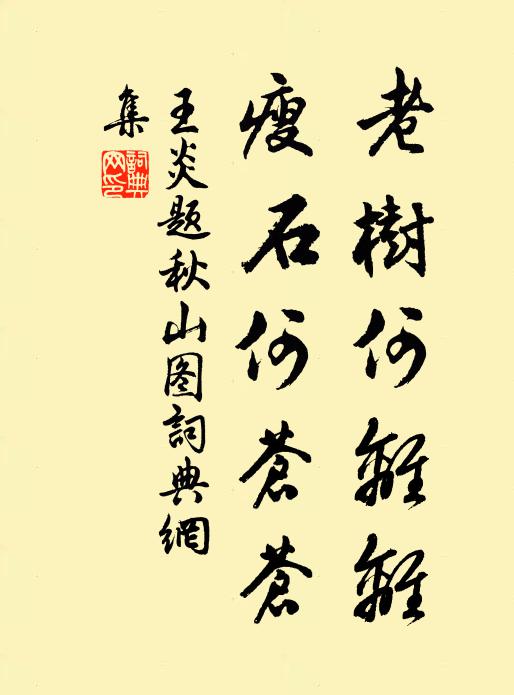 老樹何離離
瘦石何蒼蒼
王炎題秋山图詞典網
集
詞典
网印